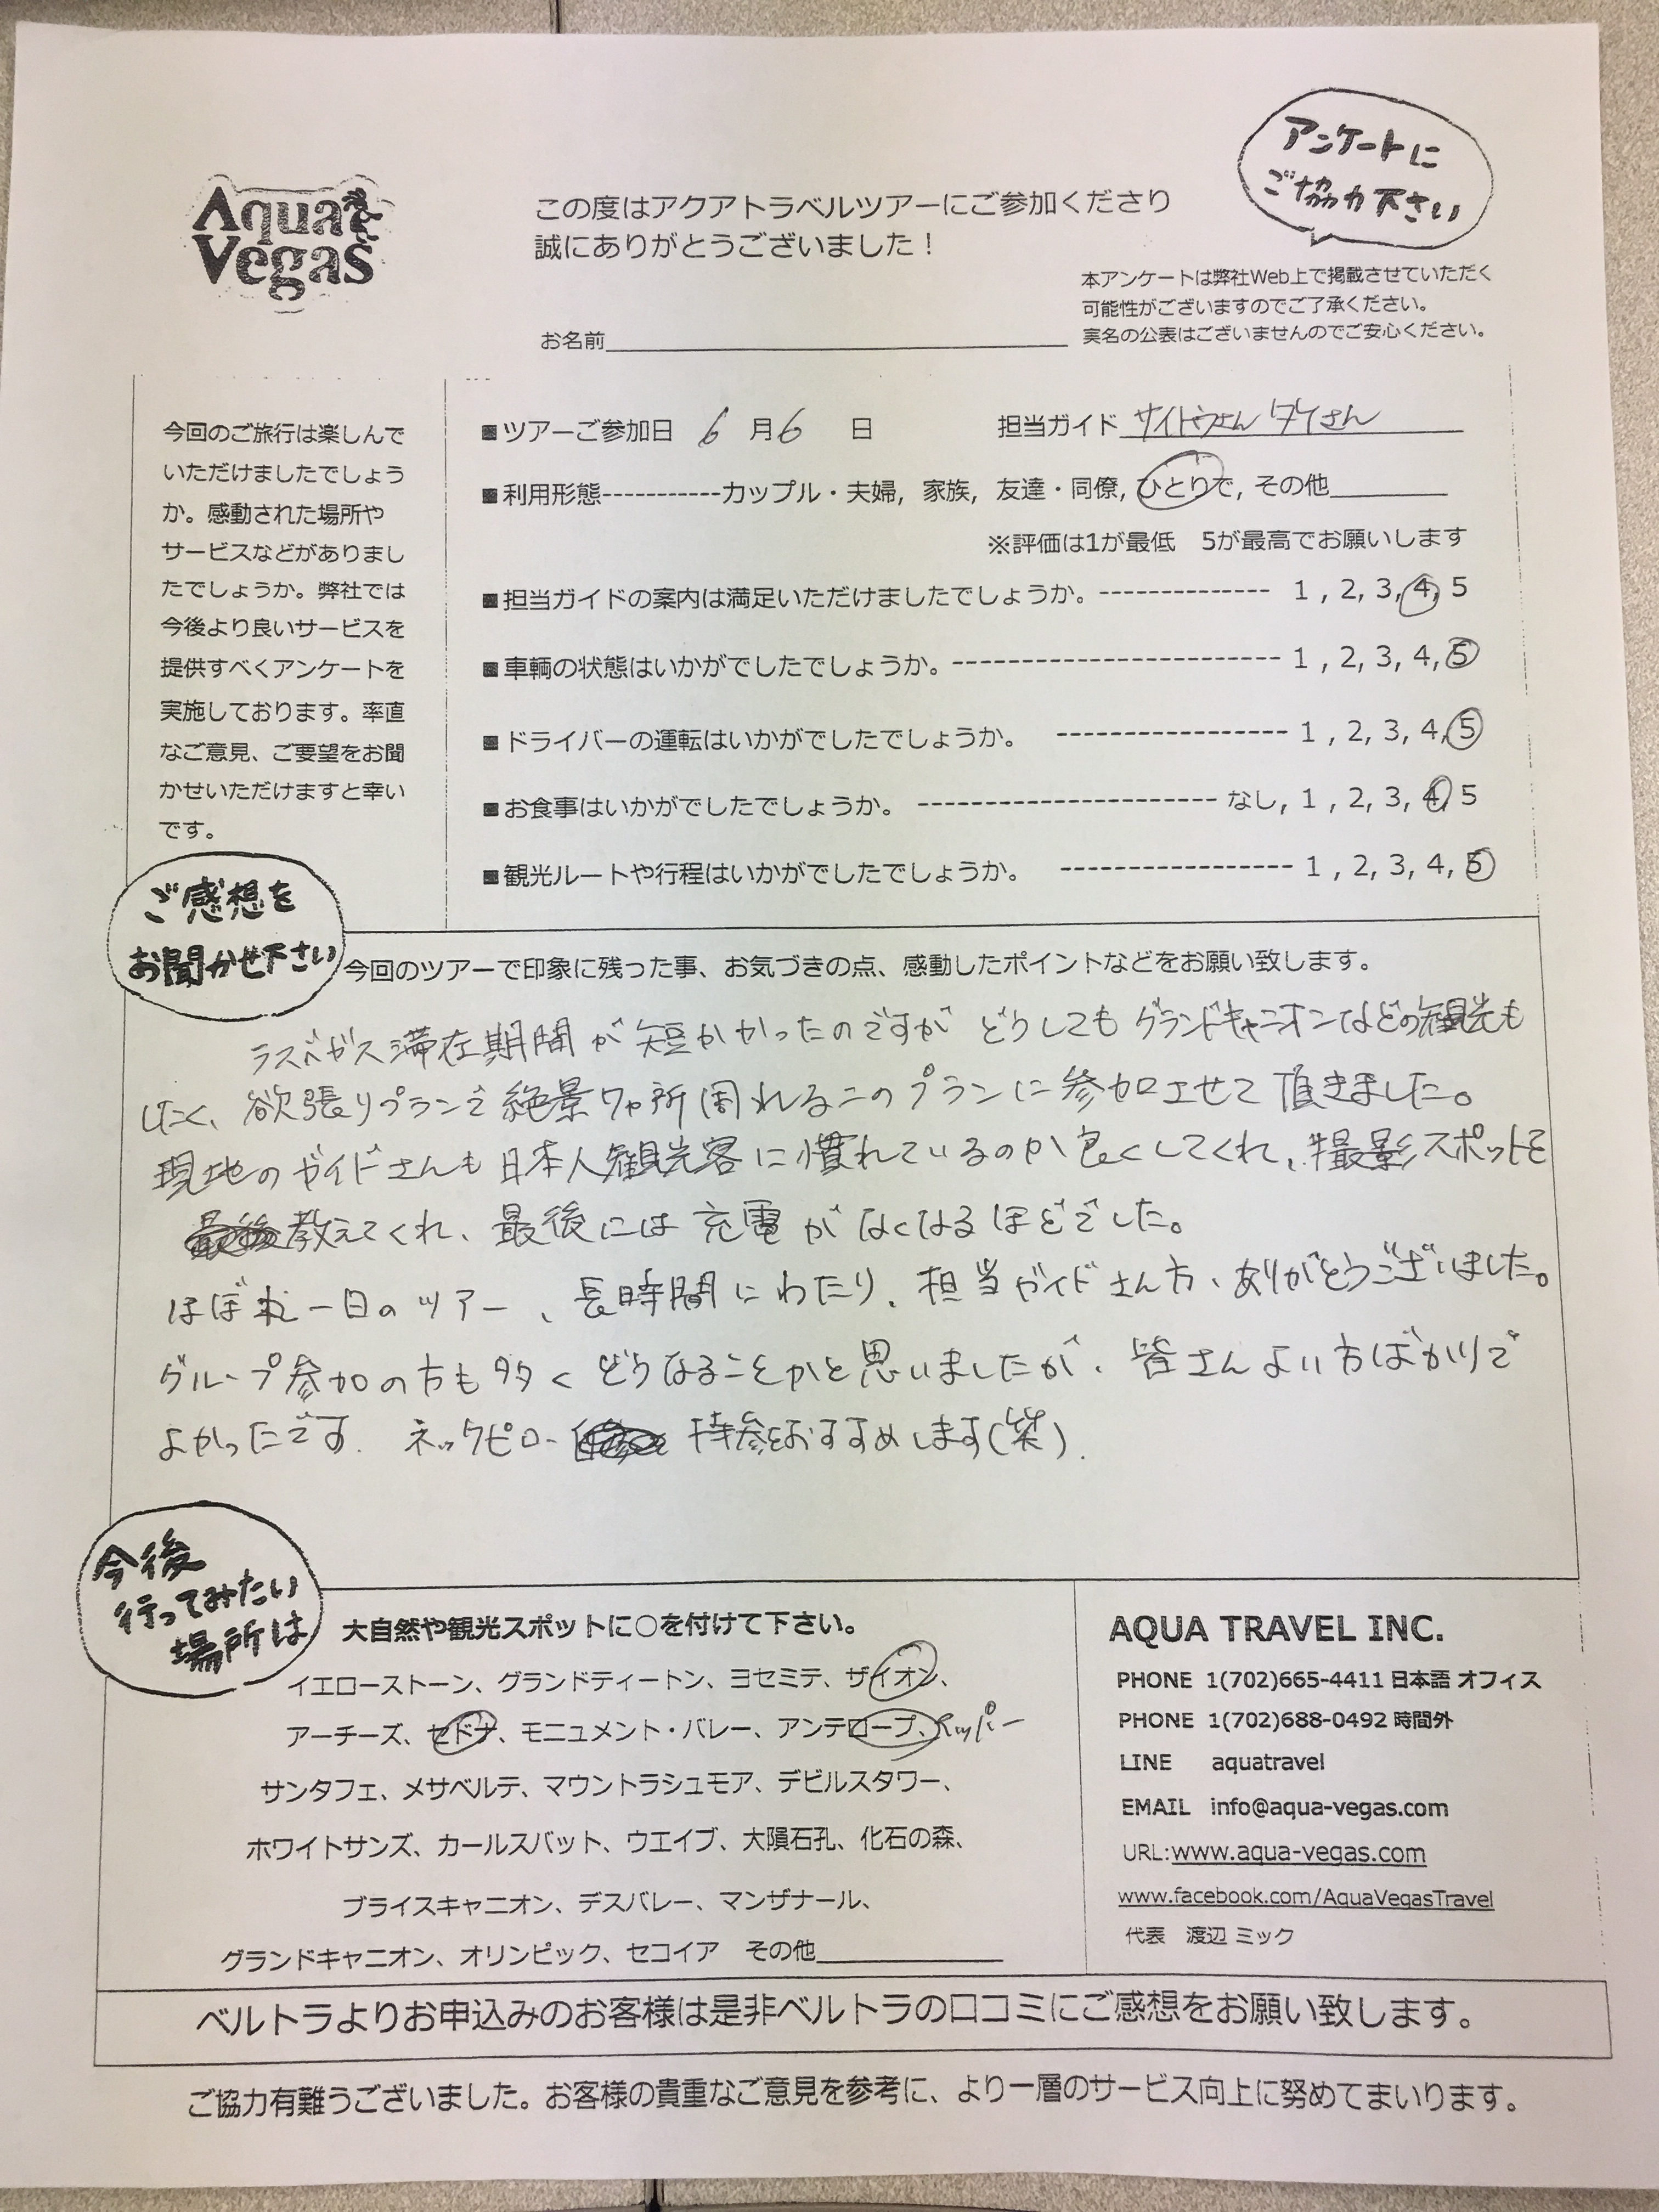 アンケートに
ご協力下さい
Aqua
Vegas
この度はアクアトラベルツアーにご参加くださり
誠にありがとうございました！
本アンケートは弊社Web上で掲載させていただく
可能性がございますのでご了承ください。
実名の公表はございませんのでご安心ください。
お名前
今回のご旅行は楽しんで
いただけましたでしょう
か。感動された場所や
サービスなどがありまし
たでしょうか。弊社では
今後より良いサービスを
提供すべくアンケートを
実施しております。率直
なご意見、ご要望をお聞
かせいただけますと幸い
です。
■ツアーご参加日 6 月 6 日 担当ガイド サイトウさん タケさん
■利用形態-----------カップル・夫婦, 家族, 友達・同僚, ひとりで, その他
※評価は1が最低 5が最高でお願いします
■担当ガイドの案内は満足いただけましたでしょうか。------------- 1 , 2, 3, 4, 5
■車輌の状態はいかがでしたでしょうか。------------------------- 1 , 2, 3, 4, 5
■ドライバーの運転はいかがでしたでしょうか。 ----------------- 1 , 2, 3, 4, 5
■お食事はいかがでしたでしょうか。 ---------------------- なし, 1 , 2, 3, 4, 5
■観光ルートや行程はいかがでしたでしょうか。 ----------------- 1 , 2, 3, 4, 5
ご感想を
お聞かせ下さい
今回のツアーで印象に残った事、お気づきの点、感動したポイントなどをお願い致します。
ラスベガス滞在期間が短かかったのですが どうしても グランドキャニオンなどの観光も
したく、欲張りプランで絶景7ヶ所周れるこのプランに参加させて頂きました。
現地のガイドさんも日本人観光客に慣れているのか良くしてくれ、撮影スポットを
教えてくれ、最後には充電がなくなるほどでした。
ほぼ丸一日のツアー、長時間にわたり、担当ガイドさん方、ありがとうございました。
グループ参加の方も多くどうなることかと思いましたが、皆さんよい方ばかりで
よかったです. ネックピロー 持参をおすすめします(笑).
今後
行ってみたい
場所は
大自然や観光スポットに○を付けて下さい。
イエローストーン、グランドティートン、ヨセミテ、ザイオン、
アーチーズ、セドナ、モニュメント・バレー、アンテロープ、アッパー
サンタフェ、メサベルテ、マウントラシュモア、デビルスタワー、
ホワイトサンズ、カールスバット、ウエイブ、大隕石孔、化石の森、
ブライスキャニオン、デスバレー、マンザナール、
グランドキャニオン、オリンピック、セコイア その他
AQUA TRAVEL INC.
PHONE 1(702)665-4411 日本語 オフィス
PHONE 1(702)688-0492 時間外
LINE aquatravel
EMAIL info@aqua-vegas.com
URL:www.aqua-vegas.com
www.facebook.com/AquaVegasTravel
代表 渡辺 ミック
ベルトラよりお申込みのお客様は是非ベルトラの口コミにご感想をお願い致します。
ご協力有難うございました。お客様の貴重なご意見を参考に、より一層のサービス向上に努めてまいります。